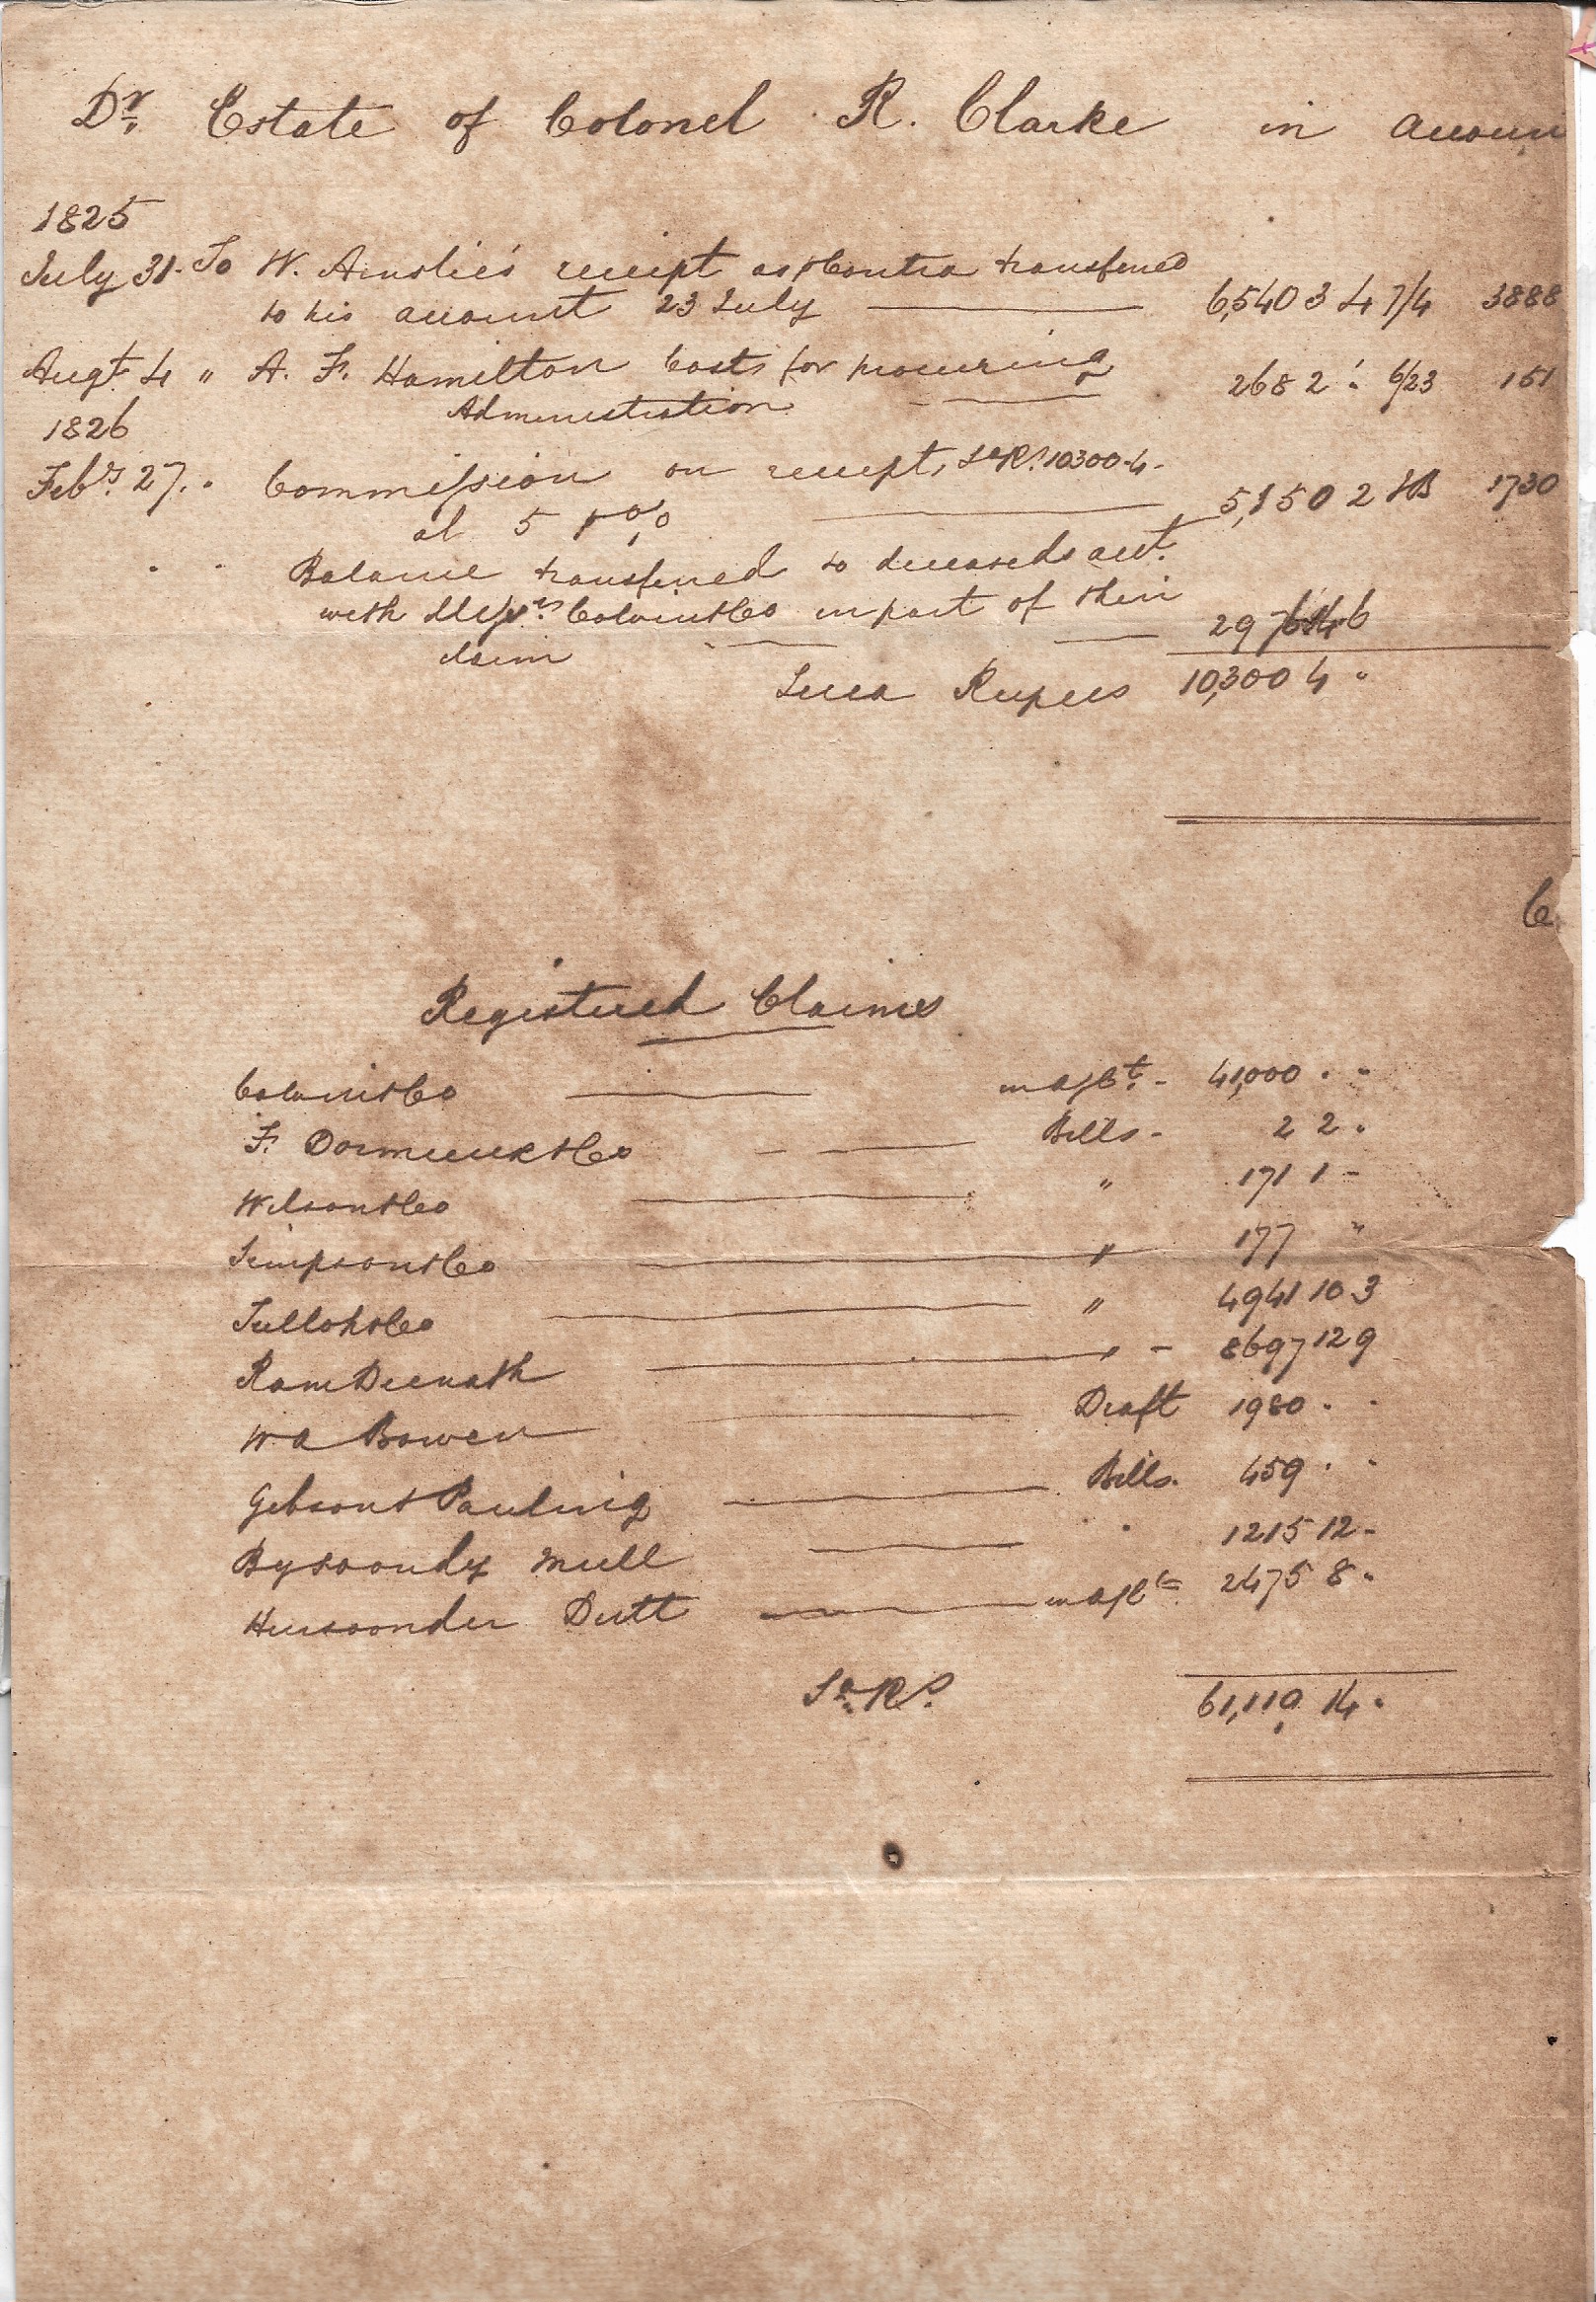 Dr. Estate of Colonel R. Clarke in Accoun
1825
July 31. To W. Ainslie's receipt as Contra transferred
to his account 23 July 6,540 3 4 7/4 3888
Augt. 4 " A. F. Hamilton Costs for procuring
Administration 268 2 " 6/23 151
1826
Feby. 27. " Commission on receipts, Sa Rs. 10300.4.
at 5 pr % 515 0 2 1730
" " Balance transferred to deceaseds acct.
with Messrs. Colvin & Co in part of their
claim 2976 14 6
Sicca Rupees 10,300 4 "
C
Registered Claims
Colvin & Co in a/ct. - 41,000 " "
F. Dormieux & Co Bills - 2 2 "
Wilson & Co " 171 1 -
Simpson & Co " 177 "
Tulloh & Co " 4941 10 3
Ram Deenath " - 8697 12 9
W A Bowen Draft 1980 " "
Gibson & Pauling Bills. 459 " "
Bysoondy Mull " 1215 12 -
Hursoonder Dutt in a/ct 2475 8 "
Sa Rs. 61,119 14 "